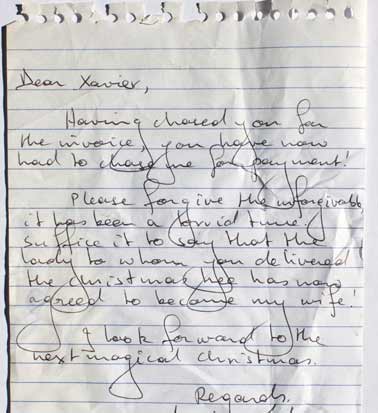 Dear Xavier,
Having chased you for
the invoice, you have now
had to chase me for payment!
Please forgive the unforgivable,
it has been a torrid time.
Suffice it to say that the
lady to whom you delivered
the Christmas tree has now
agreed to become my wife!
I look forward to the
next magical Christmas.
Regards.